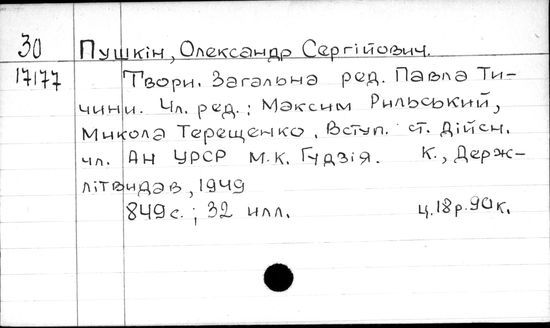 30 Пушкін, Олександр Сергійович.
17177 Твори. Загальна ред. Павла Ти-
чини. Чл. ред.: Максим Рильський,
Микола Терещенко. Вступ. ст. дійсн.
чл. АН УРСР М.К. Гудзія. К., Держ-
літвидав, 1949
849с.; 32 илл. ц. 18р. 90к.